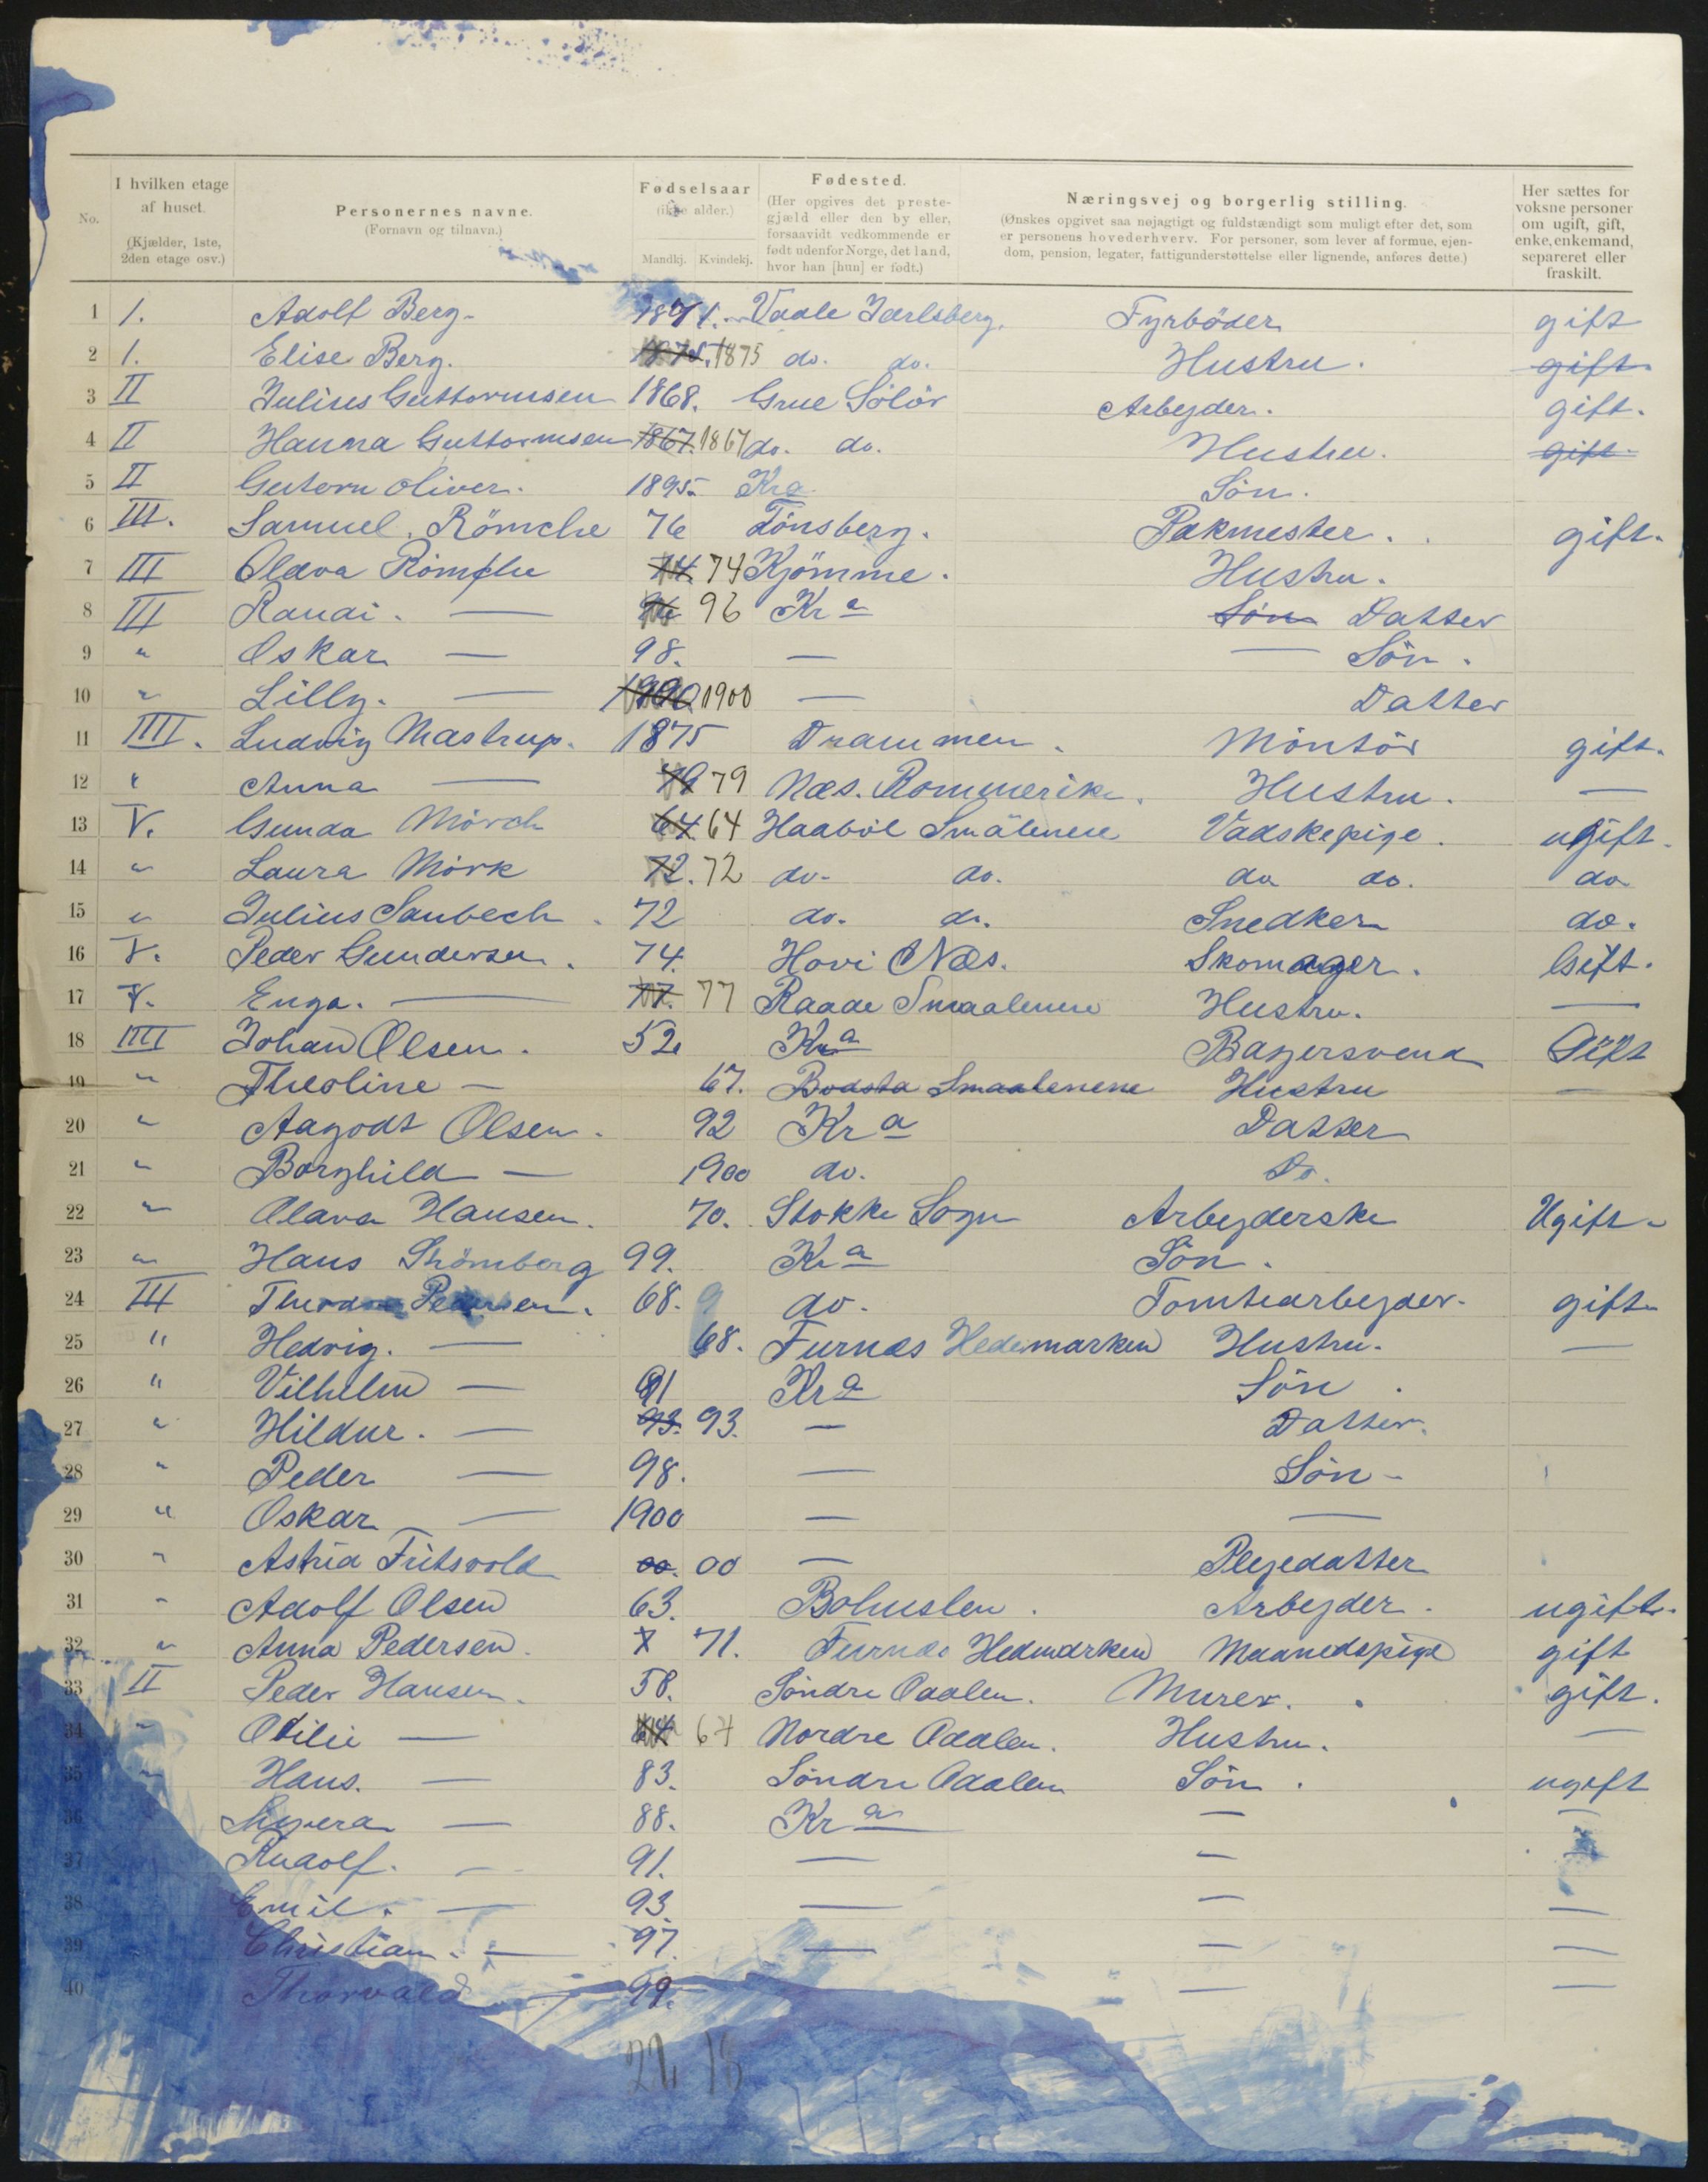 No. I hvilken etage af huset. (Kjælder, 1ste, 2den etage osv.) Personernes navne. (Fornavn og tilnavn.) Fødselsaar (ikke alder.) Mandkj. Kvindekj. Fødested. (Her opgives det prestegjæld eller den by eller, forsaavidt vedkommende er født udenfor Norge, det land, hvor han [hun] er født.) Næringsvej og borgerlig stilling. (Ønskes opgivet saa nøjagtigt og fuldstændigt som muligt efter det, som er personens hovederhverv. For personer, som lever af formue, ejendom, pension, legater, fattigunderstøttelse eller lignende, anføres dette.) Her sættes for voksne personer om ugift, gift, enke, enkemand, separeret eller fraskilt.
1 1. Adolf Berg. 1871. Vaale Jarlsberg. Fyrböder gift
2 1. Elise Berg. 1875. 1875 do. do. Hustru. gift
3 II Julius Guttormsen 1868. Grue Solör Arbejder. gift.
4 II Hanna Guttormsen 1867. 1867 do. do. Hustru. gift.
5 II Gutorm Oliver. 1895. Kra Sön.
6 III. Samuel. Römche 76 Tönsberg. Pakmester. gift.
7 III Olava Römche 74. 74 Kjömme. Hustru.
8 III Randi. — 96 96 Kra Sön Datter
9 " Oskar — 98. — — Sön.
10 " Lilly. — 1900 1900 — Datter
11 IIII. Ludvig Mastrup. 1875 Drammen. Montör gift.
12 " Anna — 79 79 Næs. Rommerike. Hustru. —
13 V. Gunda Mörch 64. 64 Haaböl Smålenene Vadskepige. ugift.
14 " Laura Mörk 72. 72 do. do. do do. do
15 " Julius Saubech. 72 do. do. Snedker do.
16 V. Peder Gundersen. 74. Hovi Næs. Skomager. Gift.
17 V. Enga. — 77. 77 Raade Smaalenene Hustru. —
18 IIII Johan Olsen. 52 Kra Bagersvend Gift
19 " Theoline — 67. Bodsta Smaalenene Hustru —
20 " Aagodt Olsen. 92 Kra Datter
21 " Borghild — 1900 do. Do.
22 " Olava Hansen. 70. Stokke Sogn Arbejderske Ugift.
23 " Hans Strömberg 99. Kra Sön.
24 III Pedersen. 68. do. Tomtearbejder. gift
25 " Hedvig. — 68. Furnæs Hedemarken Hustru. —
26 " Vilhelm — 91 Kra Sön.
27 " Hildur. — 93. 93. — Datter.
28 " Peder — 98. — Sön
29 " Oskar — 1900 — —
30 " Astrid Fritsvold 00. 00 — Plejedatter
31 " Adolf Olsen 63. Bohuslen. Arbejder. ugift.
32 " Anna Pedersen. 7 71. Furnæs Hedmarken Maanedspige gift
33 II Peder Hansen. 58. Söndre Odalen. Murer. gift.
34 " Otilie — 64 64 Nordre Odalen. Hustru. —
35 " Hans. — 83. Söndre Odalen Sön. ugift
36 — 88. Kra — —
37 Rudolf. — 91. — — —
38 Emil. — 93. — — —
39 Christian. — 97. — — —
40 Thorvald — 99. — —